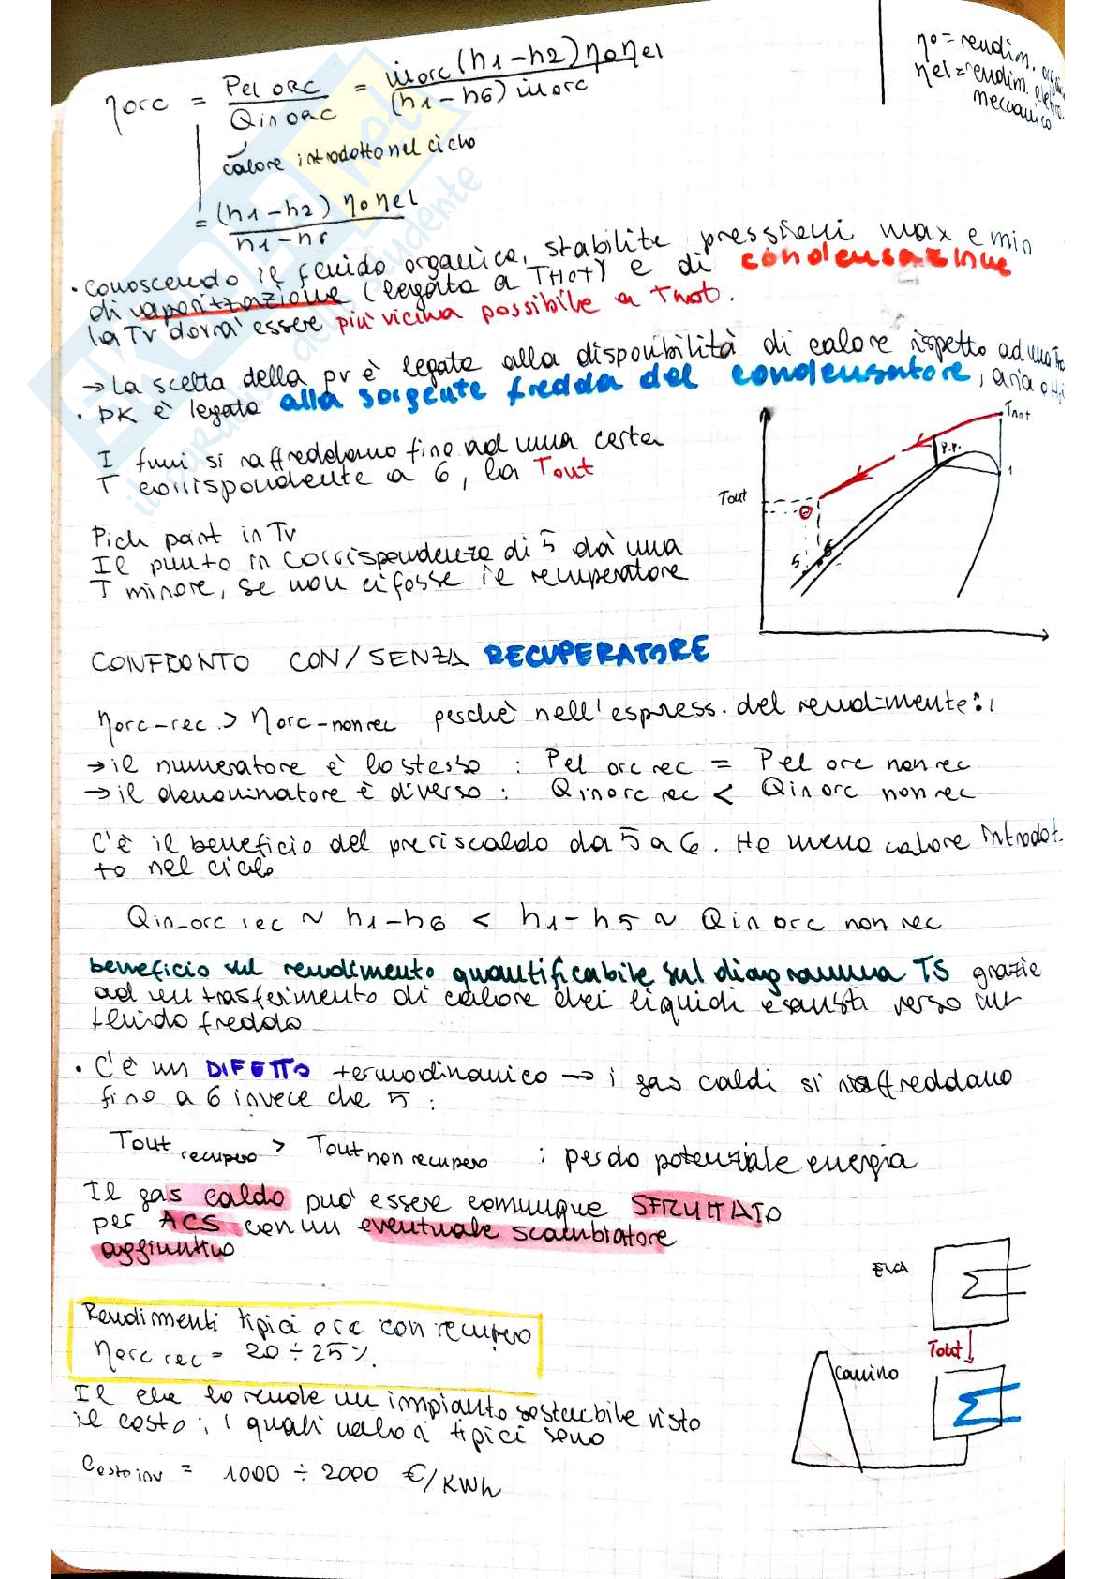 ηorc = Pel ORC / Qin ORC = ṁorc (h1-h2) ηo ηel / (h1-h6) ṁorc
ηo = rendim.
ηel = rendim.
meccanico
calore introdotto nel ciclo
= (h1-h2) ηo ηel / h1-h6
• Conoscendo il fluido organico, stabilite pressioni max e min
di vaporizzazione (legata a THOT) e di condensazione
la Tv dovrà essere più vicina possibile a Thot.
→ La scelta della pv è legata alla disponibilità di calore rispetto ad una
• PK è legata alla sorgente fredda del condensatore, aria o
I fumi si raffreddano fino ad una certa
T corrispondente a 6, la Tout
Pich point in Tv
Il punto in corrispondenza di 5 dà una
T minore, se non ci fosse il recuperatore
Thot
P.P.
1
Tout
5
6
CONFRONTO CON/SENZA RECUPERATORE
ηorc-rec > ηorc-nonrec perchè nell'espress. del rendimento:
→ il numeratore è lo stesso : Pel orc rec = Pel orc nonrec
→ il denominatore è diverso : Qinorc rec < Qin orc nonrec
C'è il beneficio del preriscaldo da 5 a 6. Ho meno calore introdot-
to nel ciclo
Qin_orc rec ~ h1-h6 < h1-h5 ~ Qin orc non rec
beneficio sul rendimento quantificabile sul diagramma TS grazie
ad un trasferimento di calore dei liquidi esausti verso un
fluido freddo
• C'è un DIFETTO termodinamico → i gas caldi si raffreddano
fino a 6 invece che 5 :
Tout recupero > Tout non recupero : perdo potenziale energia
Il gas caldo può essere comunque SFRUTTATO
per ACS con un eventuale scambiatore
aggiuntivo
Rendimenti tipici orc con recupero
ηorc rec = 20 ÷ 25%.
Il che lo rende un impianto sostenibile visto
il costo, i quali valori tipici sono
Costo inv = 1000 ÷ 2000 €/KWh
Tout
Camino